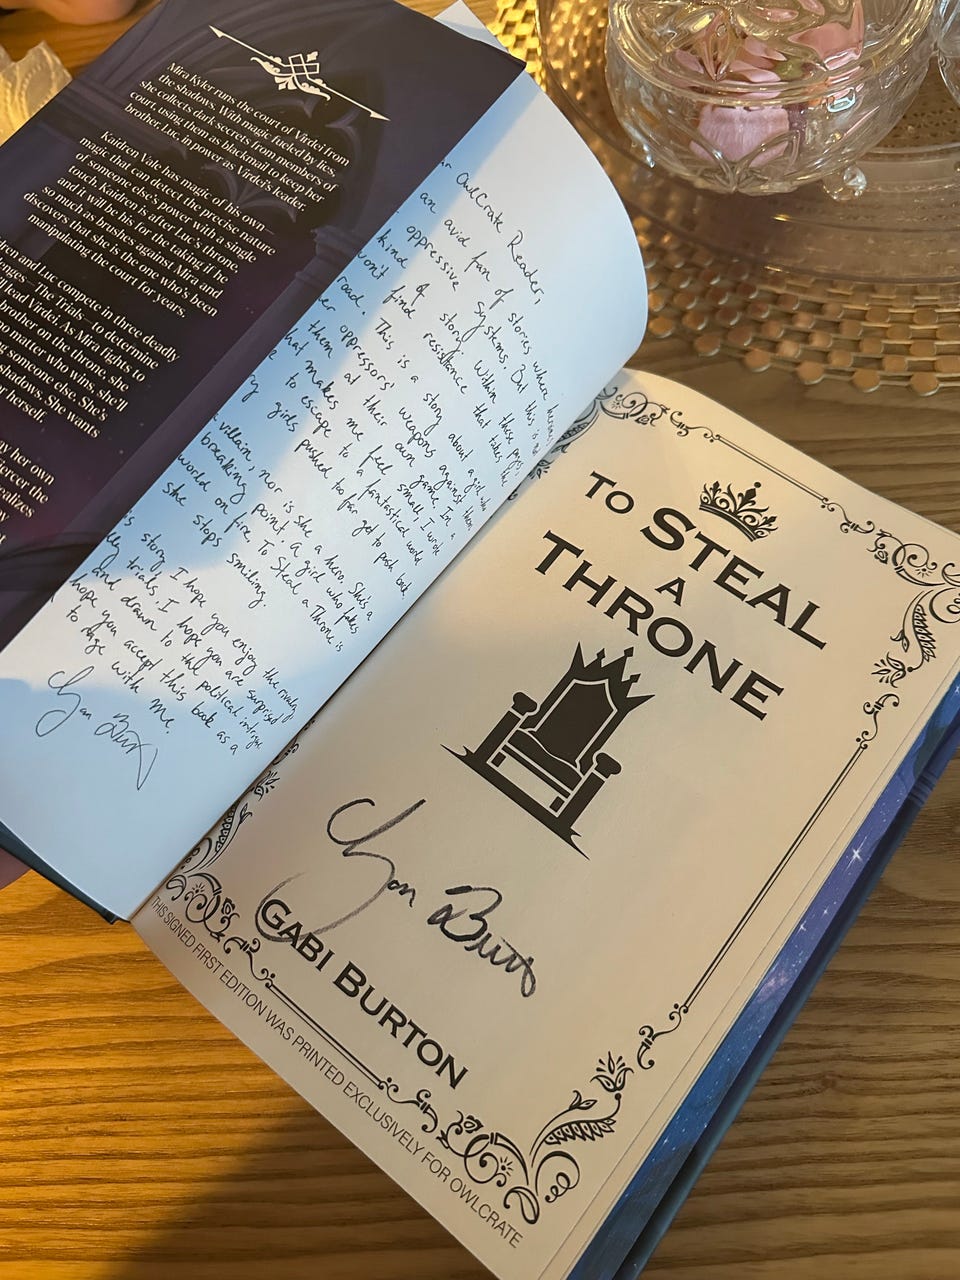 Mira Kyler runs the court of Virdei from
the shadows. With magic fueled by lies,
she collects dark secrets from members of
court, using them as blackmail to keep her
brother, Luc, in power as Virdei's leader.
Kaidren Vale has magic of his own
magic that can detect the precise nature
of someone else's power with a single
touch. Kaidren is after Luc's throne,
and it will be his for the taking if he
so much as brushes against Mira and
discovers that she is the one who's been
manipulating the court for years.
and Luc compete in three deadly
The Trials—to determine
lead Virdei. As Mira fights to
brother on the throne, she'll
no matter who wins, she'll
someone else. She's
shadows. She wants
herself.
her own
the
OwlCrate Reader,
an avid fan of stories where
oppressive systems. But this is
kind of story. Within these pages,
won't find resistance that takes the
road. This is a story about a girl who
oppressors' weapons against them
them at their own game. In a
that makes me feel small, I wrote
to escape to a fantastical world
girls pushed too far get to push back
villain, nor is she a hero. She's a
breaking point. A girl who takes
world on fire. To Steal a Throne is
she stops smiling.
story, I hope you enjoy the rivalry
trials, I hope you are surprised
and drawn to the political intrigue
hope you accept this book as a
to rage with me.
TO STEAL
A
THRONE
GABI BURTON
THIS SIGNED FIRST EDITION WAS PRINTED EXCLUSIVELY FOR OWLCRATE